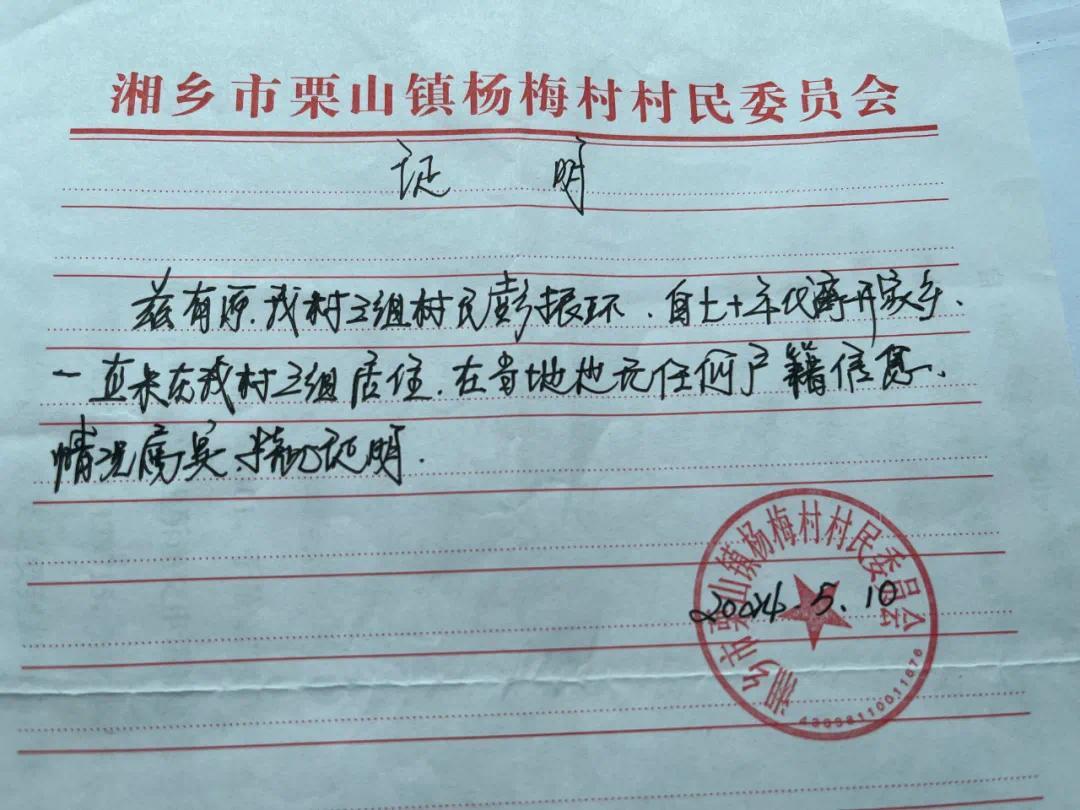 湘乡市栗山镇杨梅村村民委员会
证 明
兹有原,我村三组村民彭振环、自七十年代离开家乡、
一直未在我村三组居住,在当地也无任何户籍信息、
情况属实,特此证明.
湘乡市栗山镇杨梅村村民委员会
5.10